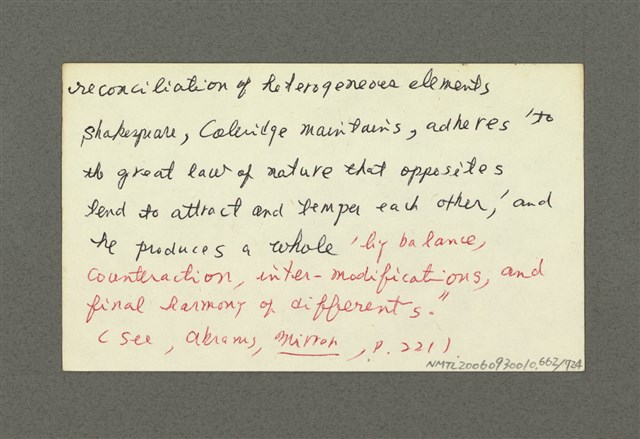 reconciliation of heterogeneous elements
Shakespeare, Coleridge maintains, adheres 'to
the great law of nature that opposites
tend to attract and temper each other,' and
he produces a whole 'by balance,
counteraction, inter-modifications, and
final harmony of differents."
(See, Abrams, Mirror, p. 221)
NMTL20060930010,662/724